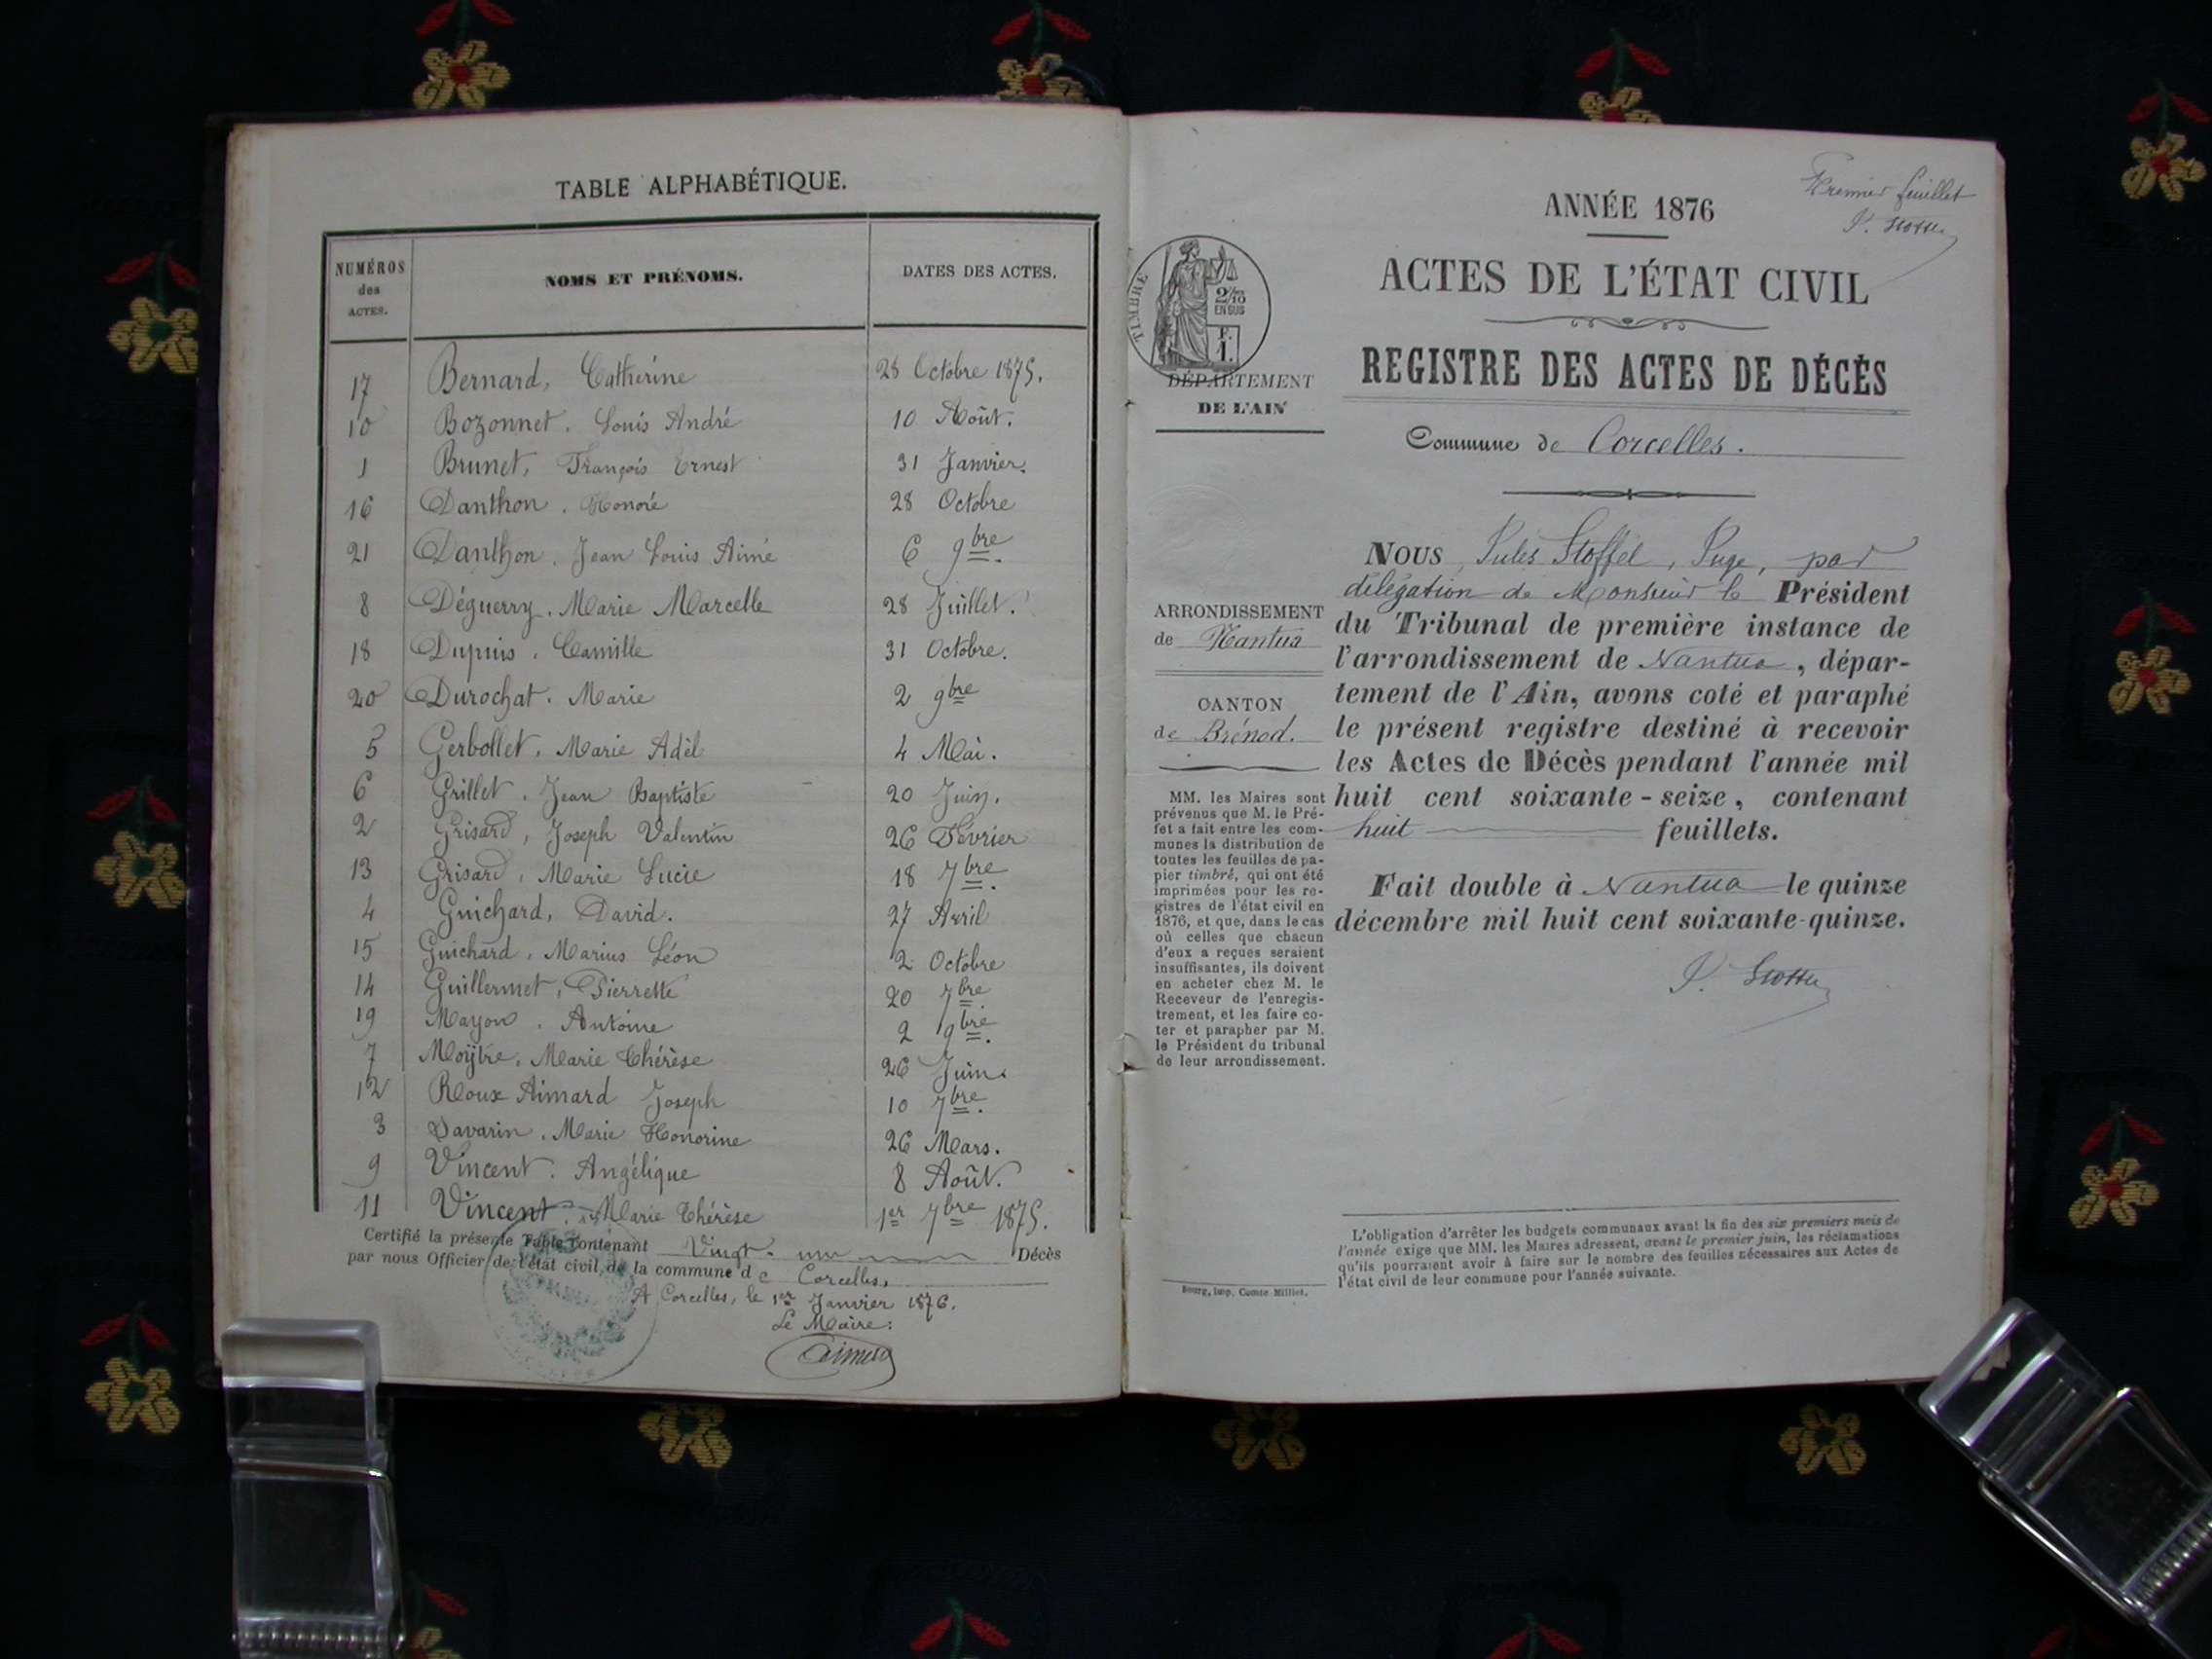 TABLE ALPHABÉTIQUE.
NUMÉROS des ACTES. NOMS ET PRÉNOMS. DATES DES ACTES.
17 Bernard, Catherine 28 Octobre 1875.
10 Bozonnet, Louis André 10 Août.
1 Brunet, François Ernest 31 Janvier.
16 Danthon, Honoré 28 Octobre
21 Danthon, Jean Louis Aimé 6 9bre.
8 Déguerry, Marie Marcelle 28 Juillet.
18 Dupuis, Camille 31 Octobre.
20 Durochat. Marie 2 9bre
5 Gerbollet, Marie Adèl 4 Mai.
6 Grillet, Jean Baptiste 20 Juin.
2 Grisard, Joseph Valentin 26 Février
13 Grisard, Marie Lucie 18 7bre.
4 Guichard, David. 27 Avril
15 Guichard, Marius Léon 2 Octobre
14 Guillermet, Pierrette 20 7bre.
19 Mayon, Antoine 2 9bre.
7 Moÿtre, Marie Thérèse 26 Juin.
12 Roux Aimard Joseph 10 7bre.
3 Savarin, Marie Honorine 26 Mars.
9 Vincent. Angélique 8 Août.
11 Vincent, Marie Thérèse 1er 7bre 1875.
Certifié la présente Table contenant Vingt-un Décès
par nous Officier de l'état civil de la commune de Corcelles,
A Corcelles, le 1er Janvier 1876.
Le Maire:
Premier feuillet
ANNÉE 1876
ACTES DE L'ÉTAT CIVIL
REGISTRE DES ACTES DE DÉCÈS
Commune de Corcelles.
TIMBRE
2/10
EN SUS
F.
1.
DÉPARTEMENT
DE L'AIN
ARRONDISSEMENT
de Nantua
CANTON
de Brénod.
MM. les Maires sont
prévenus que M. le Pré-
fet a fait entre les com-
munes la distribution de
toutes les feuilles de pa-
pier timbré, qui ont été
imprimées pour les re-
gistres de l'état civil en
1876, et que, dans le cas
où celles que chacun
d'eux a reçues seraient
insuffisantes, ils doivent
en acheter chez M. le
Receveur de l'enregis-
trement, et les faire co-
ter et parapher par M.
le Président du tribunal
de leur arrondissement.
NOUS Jules Stoffel, Juge, par
délégation de Monsieur le Président
du Tribunal de première instance de
l'arrondissement de Nantua, dépar-
tement de l'Ain, avons coté et paraphé
le présent registre destiné à recevoir
les Actes de Décès pendant l'année mil
huit cent soixante-seize, contenant
huit feuillets.
Fait double à Nantua le quinze
décembre mil huit cent soixante-quinze.
L'obligation d'arrêter les budgets communaux avant la fin des six premiers mois de
l'année exige que MM. les Maires adressent, avant le premier juin, les réclamations
qu'ils pourraient avoir à faire sur le nombre des feuilles nécessaires aux Actes de
l'état civil de leur commune pour l'année suivante.
Bourg, imp. Comte-Milliet.